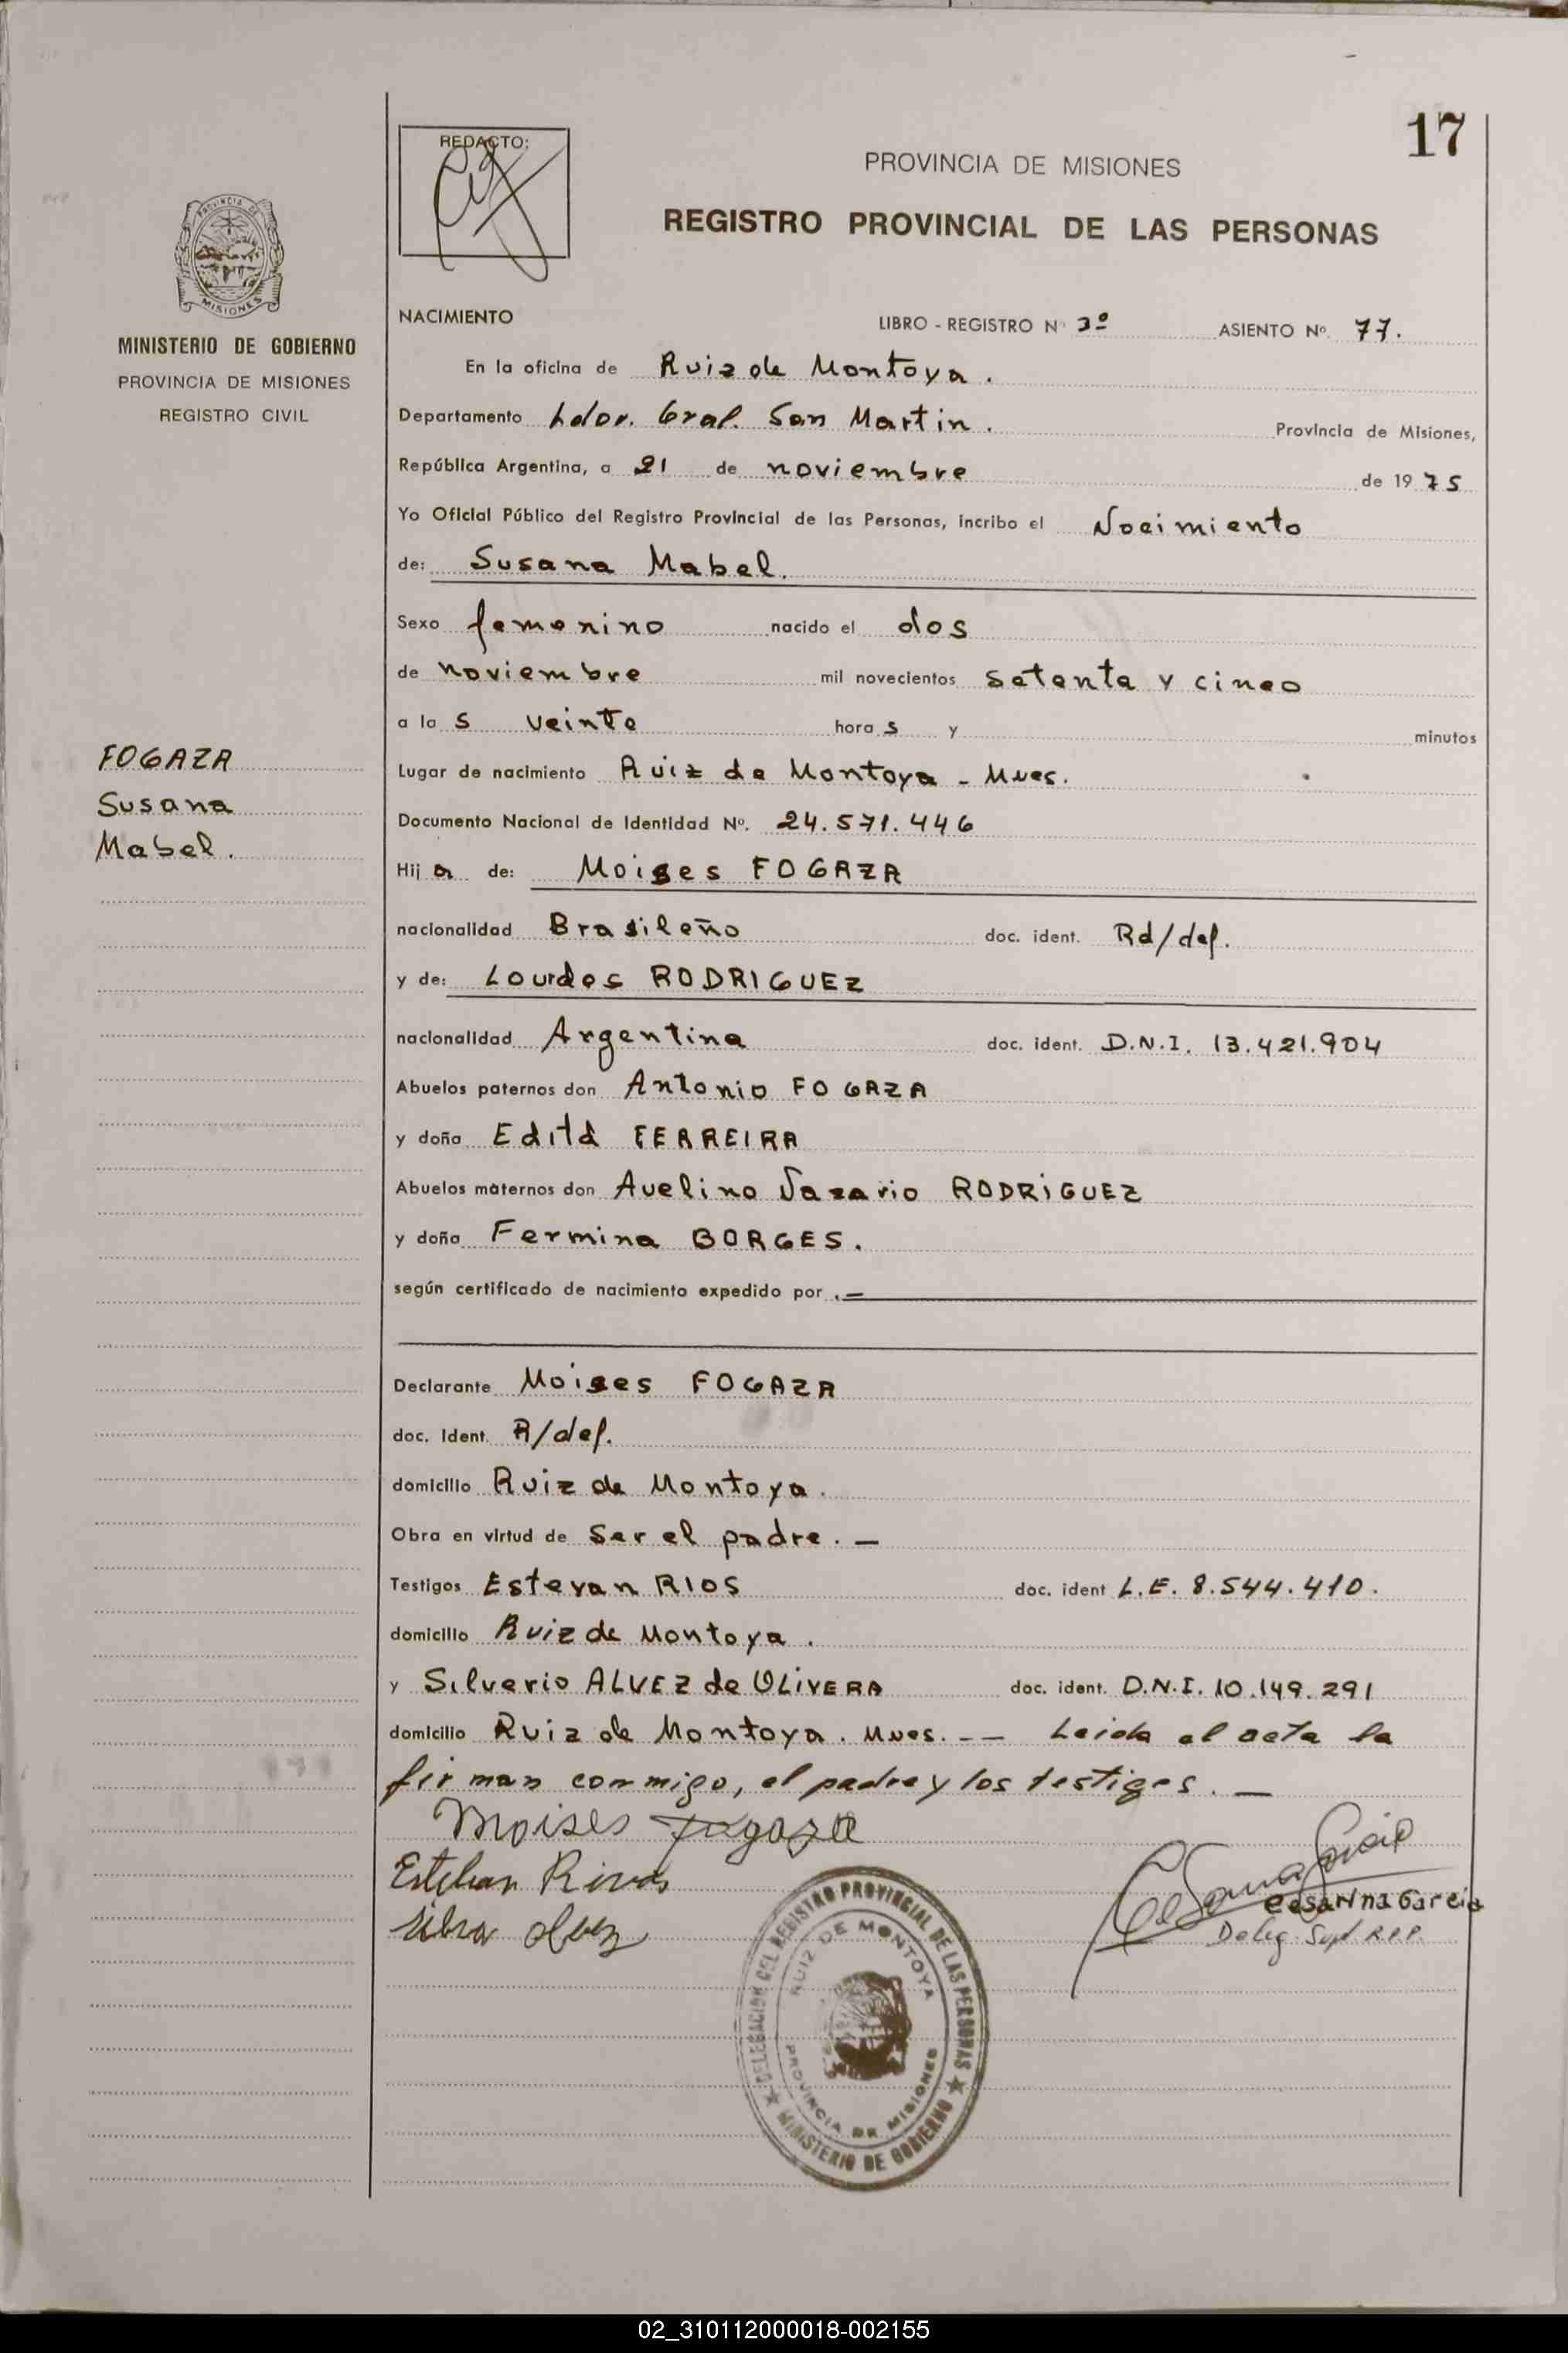 17
REDACTO:
PROVINCIA DE MISIONES
REGISTRO PROVINCIAL DE LAS PERSONAS
PROVINCIA DE
MISIONES
MINISTERIO DE GOBIERNO
PROVINCIA DE MISIONES
REGISTRO CIVIL
FOGAZA
Susana
Mabel.
NACIMIENTO LIBRO - REGISTRO Nº 3º ASIENTO Nº. 77.
En la oficina de Ruiz de Montoya.
Departamento Ldor. Gral. San Martin. Provincia de Misiones,
República Argentina, a 21 de noviembre de 1975
Yo Oficial Público del Registro Provincial de las Personas, incribo el Nacimiento
de: Susana Mabel.
Sexo femenino nacido el dos
de noviembre mil novecientos setenta y cinco
a las veinte horas y minutos
Lugar de nacimiento Ruiz de Montoya - Mnes.
Documento Nacional de Identidad Nº. 24.571.446
Hija de: Moises FOGAZA
nacionalidad Brasileño doc. ident. Rd/def.
y de: Lourdes RODRIGUEZ
nacionalidad Argentina doc. ident. D.N.I. 13.421.904
Abuelos paternos don Antonio FOGAZA
y doña Edita FERREIRA
Abuelos maternos don Avelino Nazario RODRIGUEZ
y doña Fermina BORGES.
según certificado de nacimiento expedido por .—
Declarante Moises FOGAZA
doc. ident. R/def.
domicilio Ruiz de Montoya.
Obra en virtud de Ser el padre. —
Testigos Estevan RIOS doc. ident L.E. 8.544.410.
domicilio Ruiz de Montoya.
y Silverio ALVEZ de OLIVERA doc. ident. D.N.I. 10.149.291
domicilio Ruiz de Montoya. Mnes. -- Leida el acta la
firman conmigo, el padre y los testigos. —
Moises Fogaza
Esteban
Cesarina Garcia
Deleg. Supl. R.P.P.
DELEGACION DEL REGISTRO PROVINCIAL DE LAS PERSONAS
RUIZ DE MONTOYA
PROVINCIA DE MISIONES
★ MINISTERIO DE GOBIERNO ★
02_310112000018-002155